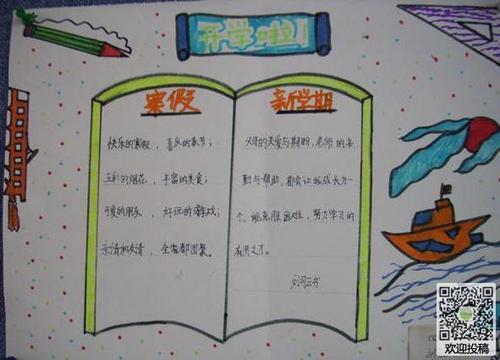 开学啦！
寒假
快乐的寒假，喜庆的春节；
五彩的烟花，丰富的美食；
可爱的朋友，好玩的游戏；
亲情和友情，全都都团聚。
新学期
父母的关爱与期盼，老师的辛
勤与帮助，都会让我成长为一
个能克服困难，努力学习的
有用之才。
欢迎投稿